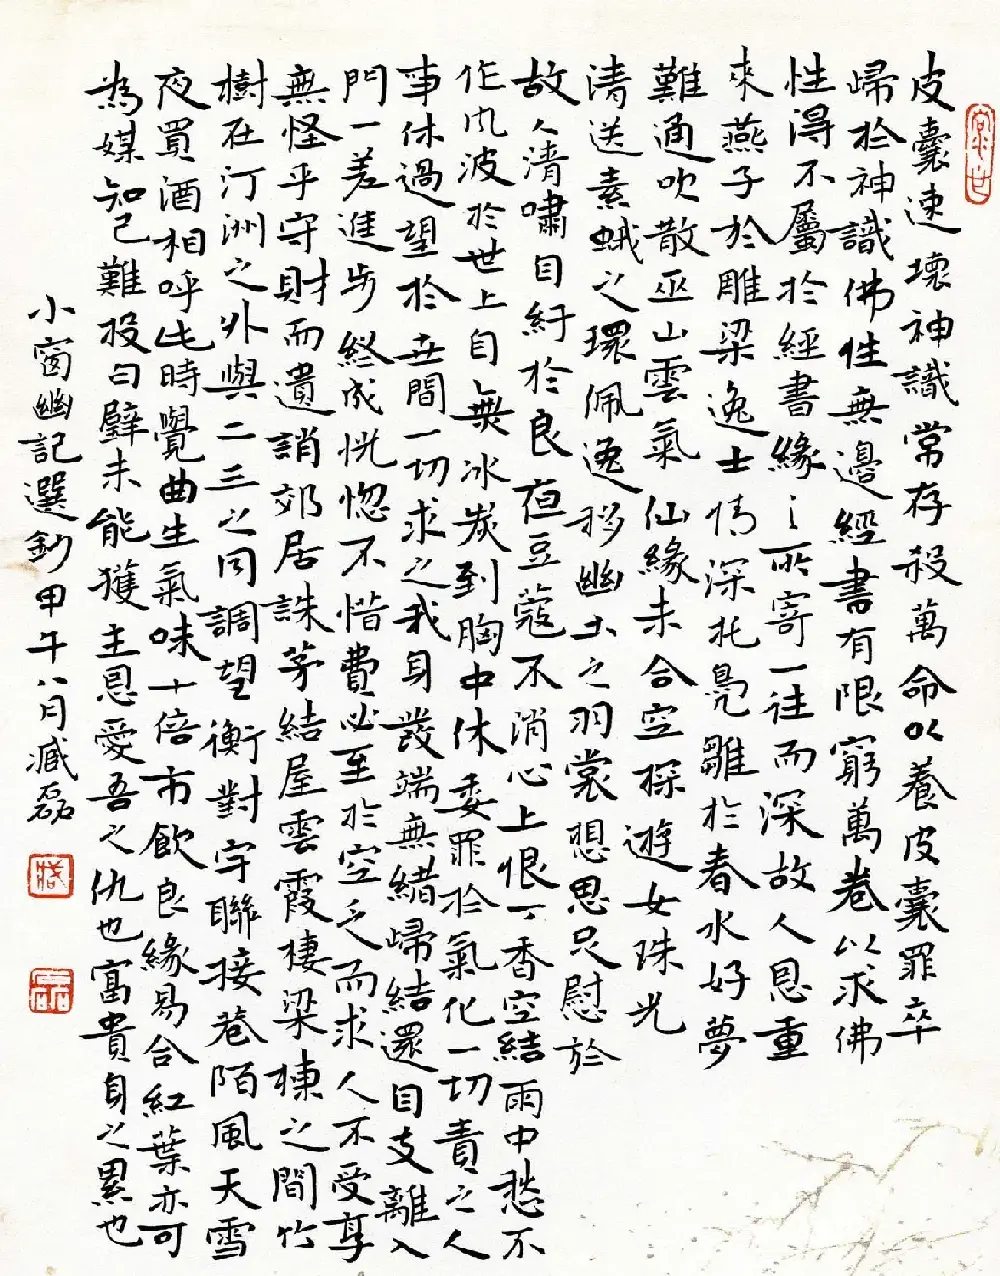 皮囊速壞神識常存殺萬命以養皮囊罪卒
歸於神識佛性無邊經書有限窮萬卷以求佛
性得不屬於經書緣之所寄一往而深故人恩重
來燕子於雕梁逸士情深托鳧雛於春水好夢
難通吹散巫山雲氣仙緣未合空探遊女珠光
清送素蛾之環佩逸移幽士之羽裳想思足慰於
故人清嘯自紓於良夜豆蔻不消心上恨丁香空結雨中愁不
作風波於世上自無冰炭到胸中休委罪於氣化一切責之人
事休過望於世間一切求之我身發端無緒歸結還自支離入
門一差進步終成恍惚不惜費必至於空乏而求人不受享
無怪乎守財而遺誚郊居誅茅結屋雲霞棲梁棟之間竹
樹在汀洲之外與二三之同調望衡對宇聯接巷陌風天雪
夜買酒相呼此時覺曲生氣味十倍市飲良緣易合紅葉亦可
為媒知己難投白璧未能獲主恩愛吾之仇也富貴身之累也
小窗幽記選鈔甲午八月臧磊